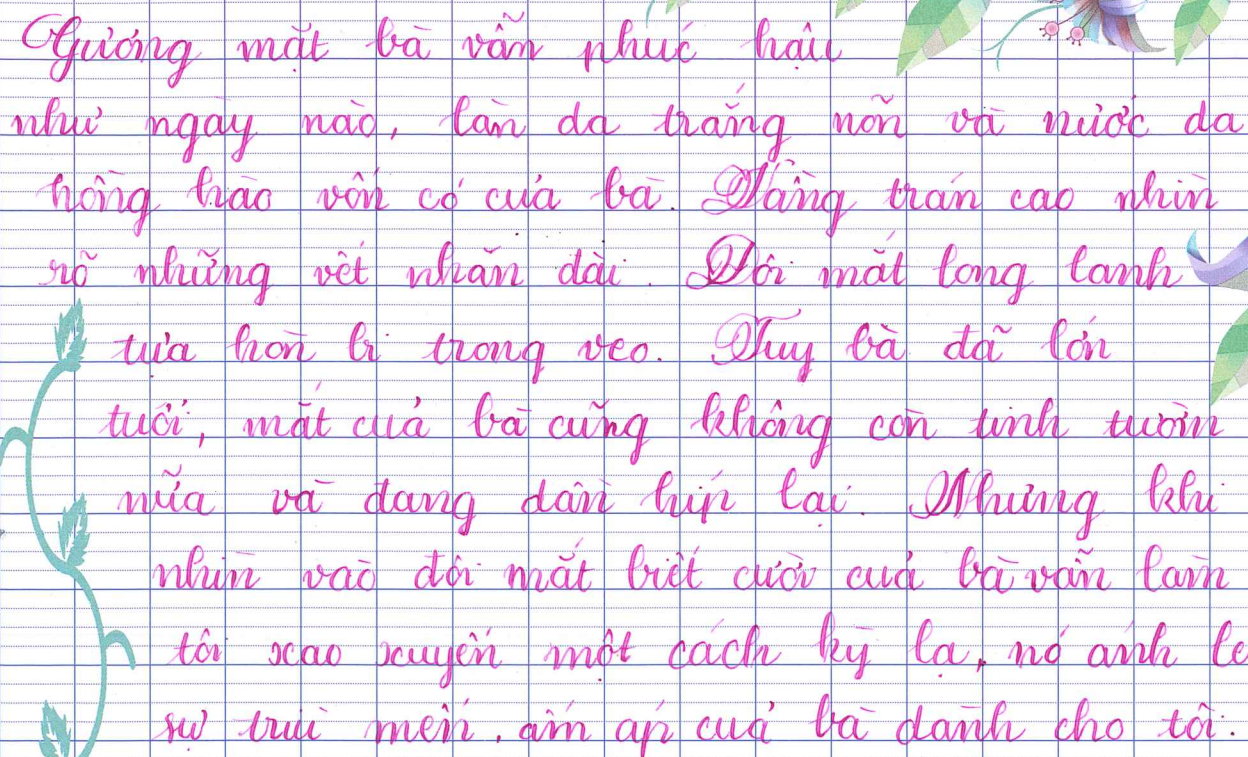 Gương mặt bà vẫn phúc hậu
như ngày nào, làn da trắng nõn và nước da
hồng hào vốn có của bà. Vầng trán cao nhìn
rõ những vết nhăn dài. Đôi mắt long lanh
tựa hòn bi trong veo. Tuy bà đã lớn
tuổi, mắt của bà cũng không còn tinh tườm
nữa và đang dần híp lại. Nhưng khi
nhìn vào đôi mắt biết cười của bà vẫn làm
tôi xao xuyến một cách kỳ lạ, nó ánh lê
sự trùi mến, ấm áp của bà dành cho tôi.